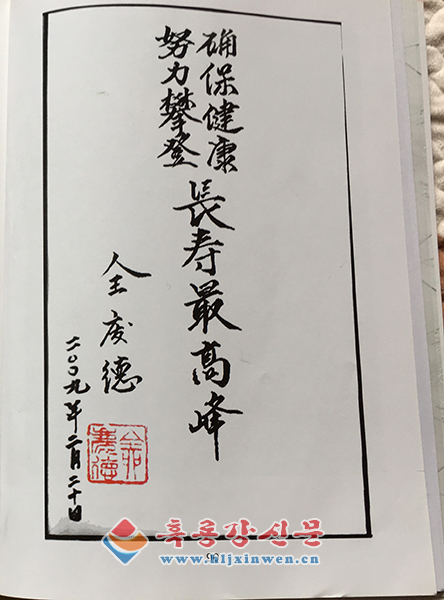 确保健康
努力攀登
長寿最高峰
全 德
二〇〇九年二月二十日
흑룡강신문
www.hljxinwen.cn